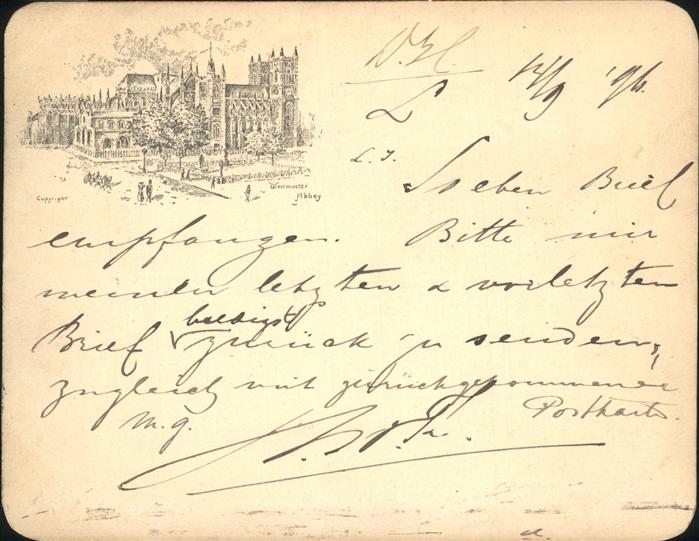 Copyright
Westminster
Abbey
L. J.
Soeben Brief
empfangen. Bitte mir
meinen letzten & vorletzten
Brief baldigst zurück zu senden,
zugleich mit zurückgekommener
Postkarte.
m. g.